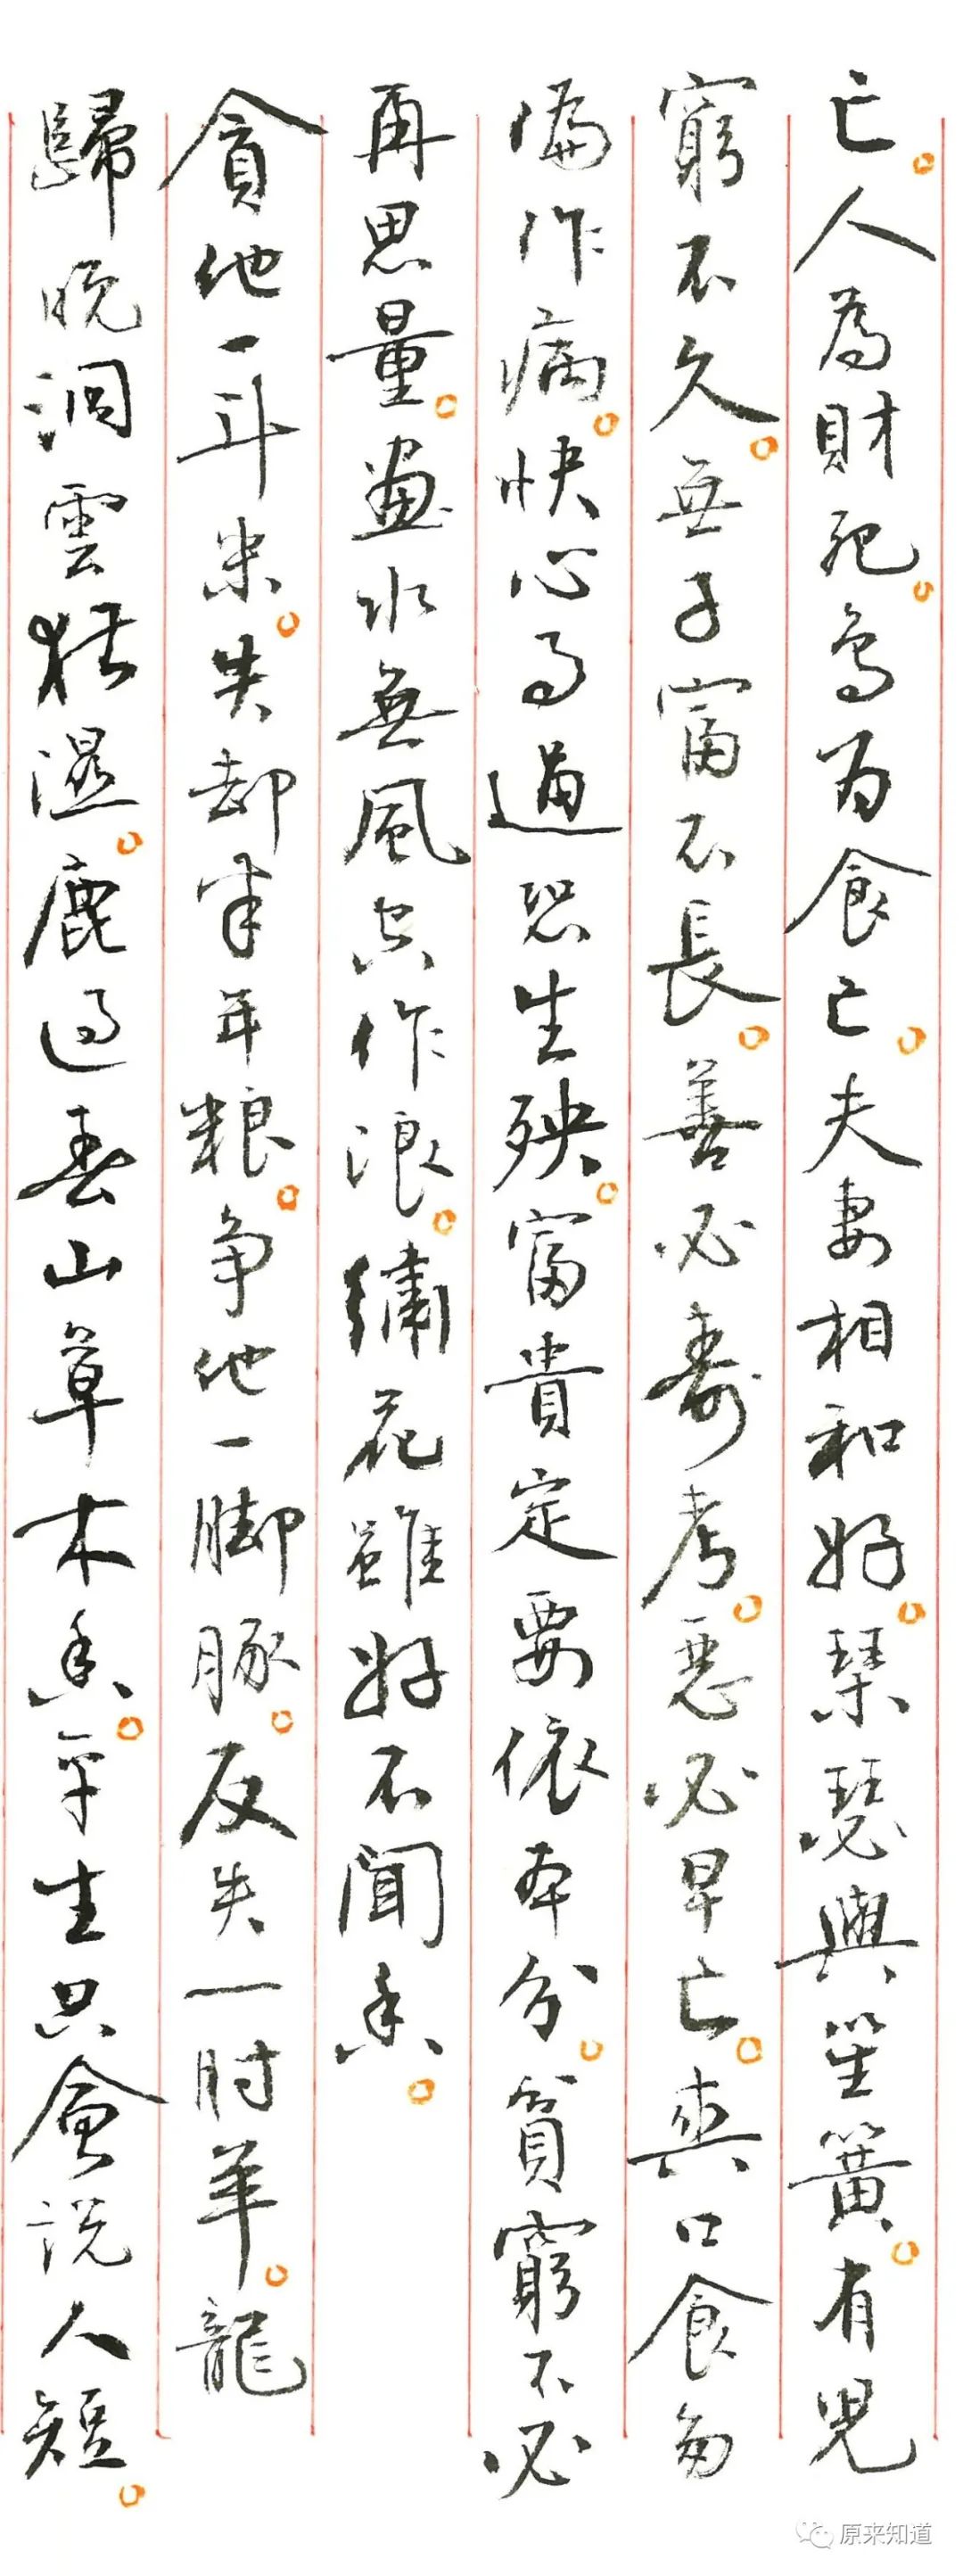 亡。人為財死。鳥为食亡。夫妻相和好。琴瑟與笙簧。有兒
窮不久。無子富不長。善必壽考。惡必早亡。爽口食多
偏作病。快心事過恐生殃。富貴定要依本分。貧窮不必
再思量。畫水無風空作浪。繡花雖好不聞香。
貪他一斗米。失却半年粮。争他一脚豚。反失一肘羊。龍
歸晚洞雲猶濕。鹿過春山草木香。平生只會説人短。
原来知道